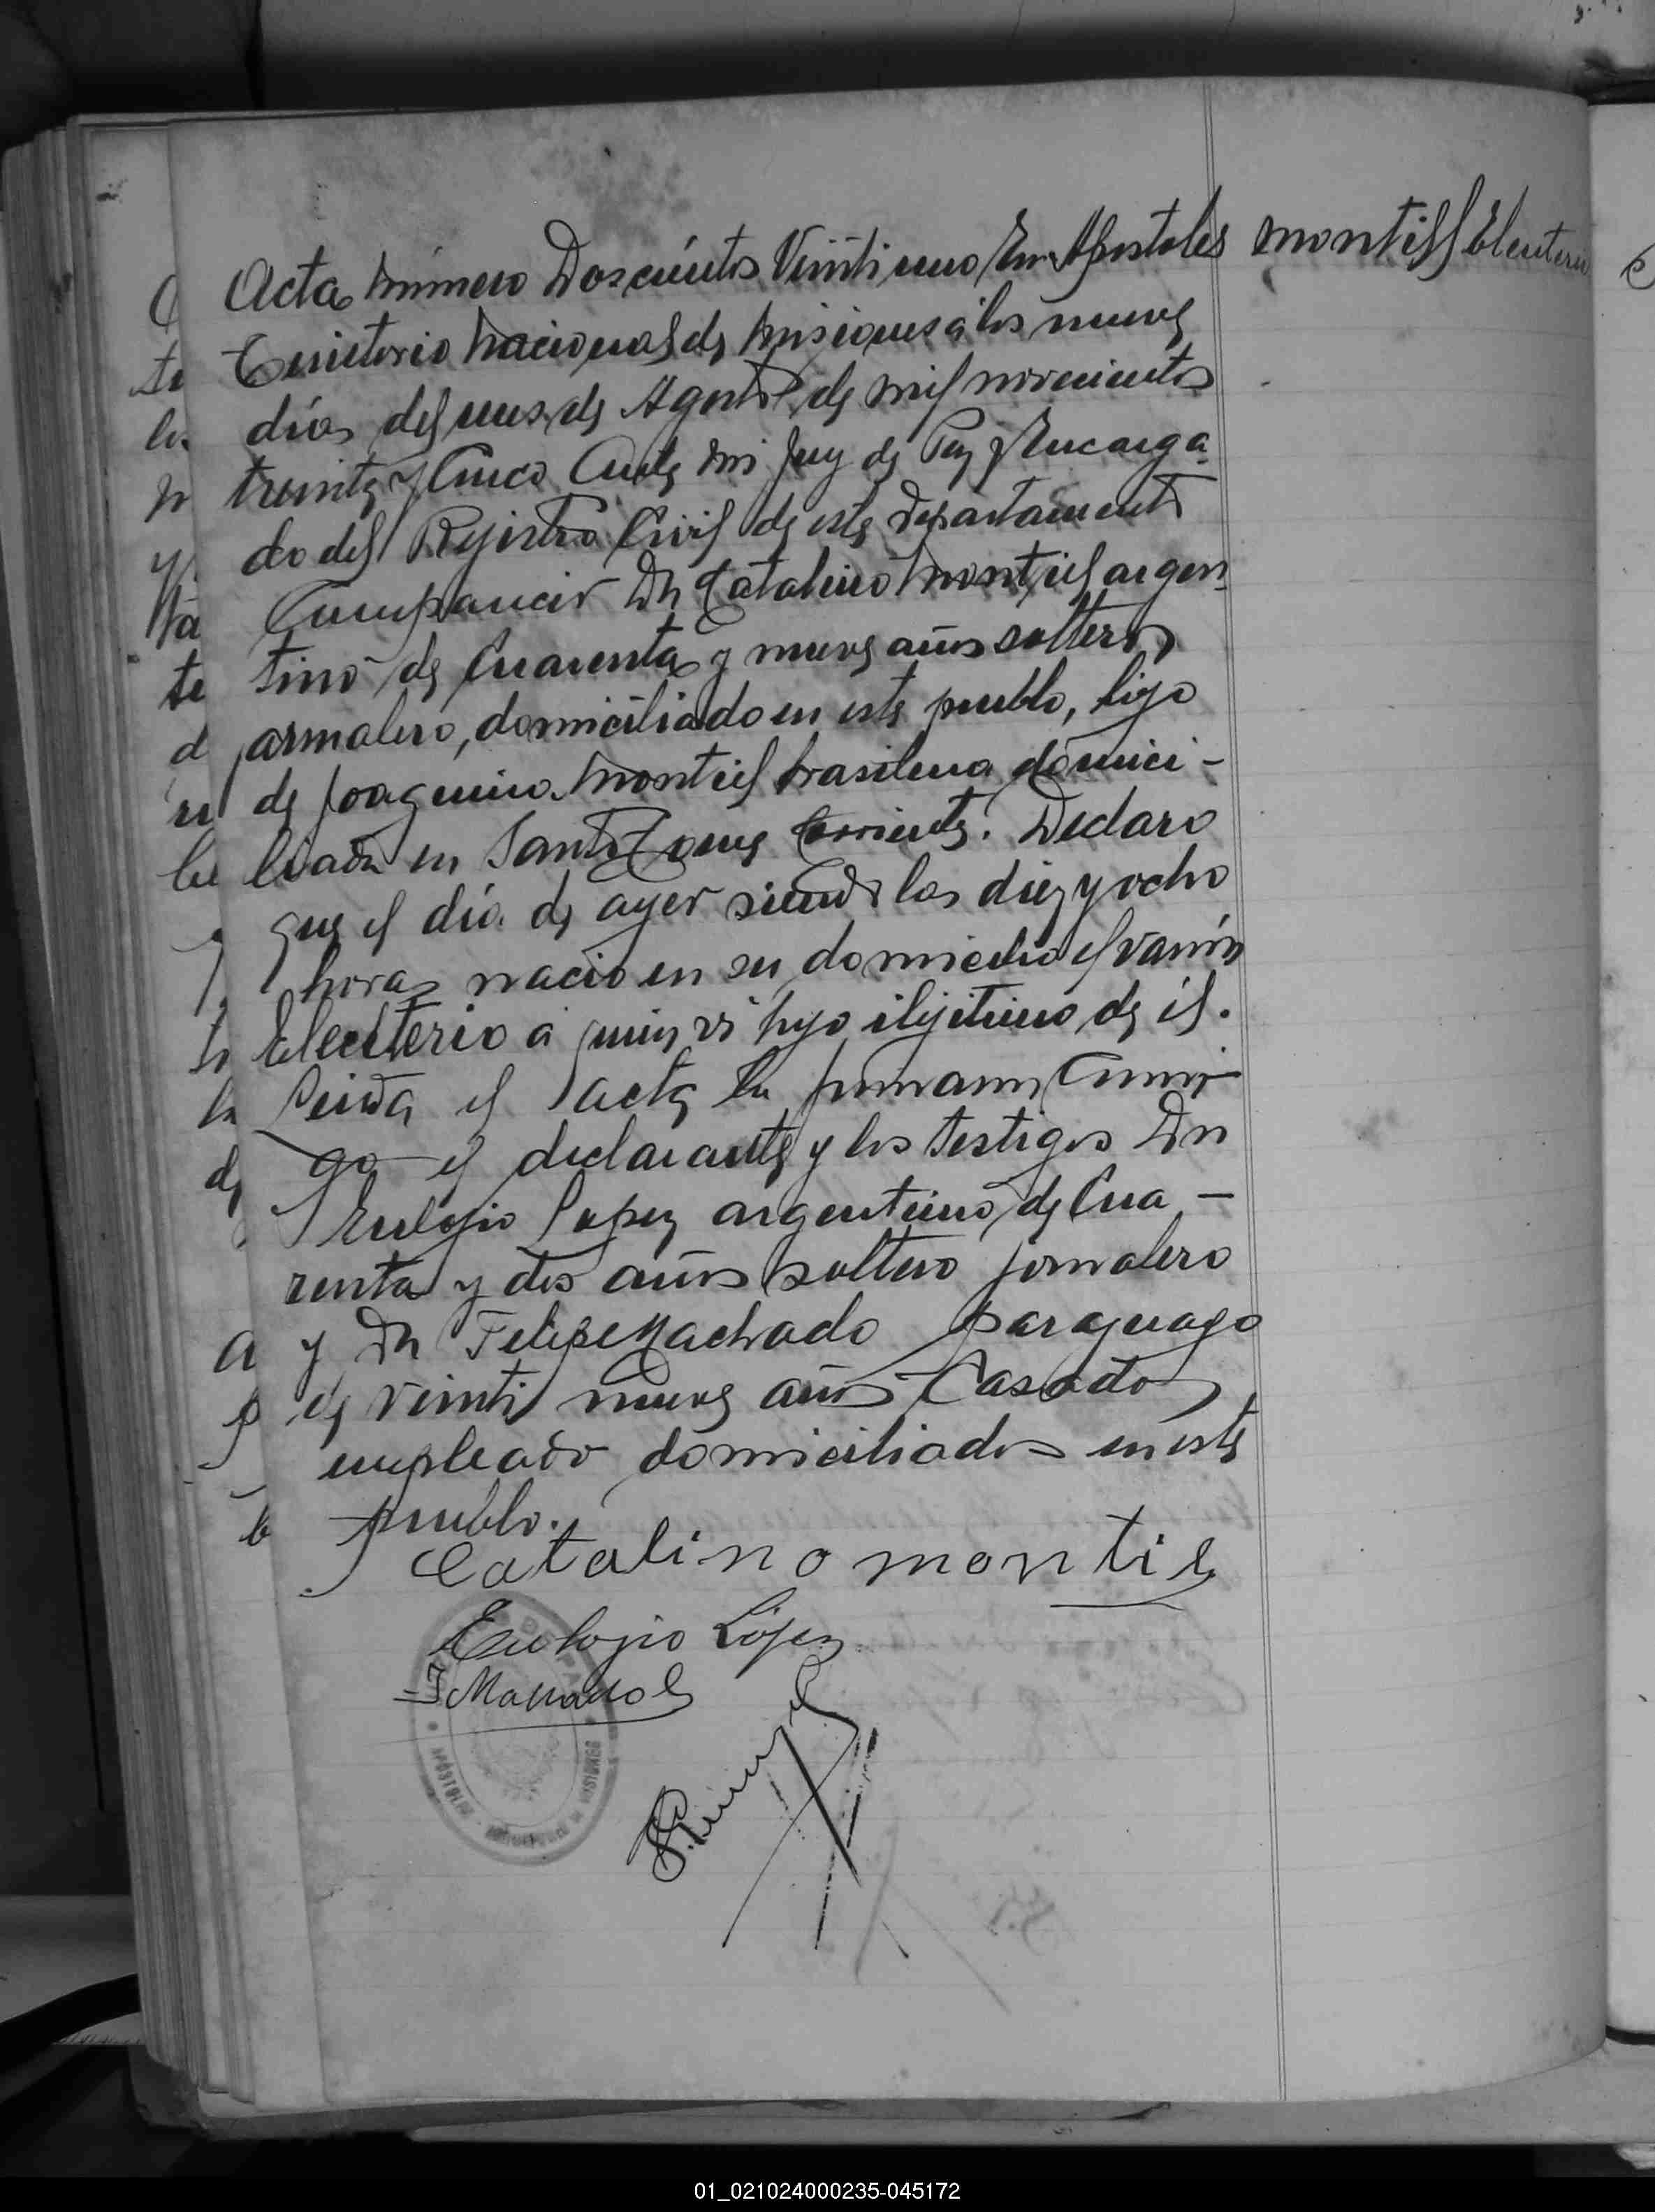 Acta número Doscientos Veintiuno En Apostoles
montiel Eleuterio
Territorio Nacional de Misiones á los nueve
días del mes de Agosto de mil novecientos
treinta y Cinco Ante mi Juez de Paz y Encarga
do del Rejistro Civil de este Departamento
Compareció Dn Catalino Montiel argen
tino de Cuarenta y nueve años soltero
jornalero, domiciliado en este pueblo, hijo
de Joaquina Montiel brasilena domici-
liada en Santo Tome Corrientes. Declaro
que el día de ayer siendo las diez y ocho
horas nacio en su domicilio el varón
Eleuterio a quien vi hijo ilijitimo de él.
Leida el acta la firmaron Conmi
go el declarante y los testigos Dn
Eulojio Lopez argentino de Cua-
renta y dos años soltero jornalero
y Dn Felipe Machado paraguayo
de veinti nueve años Casado
empleado domiciliados en este
pueblo.
Catalino montiel
Eulojio López
F Machado
APÓSTOLES MISIONES
01_021024000235-045172